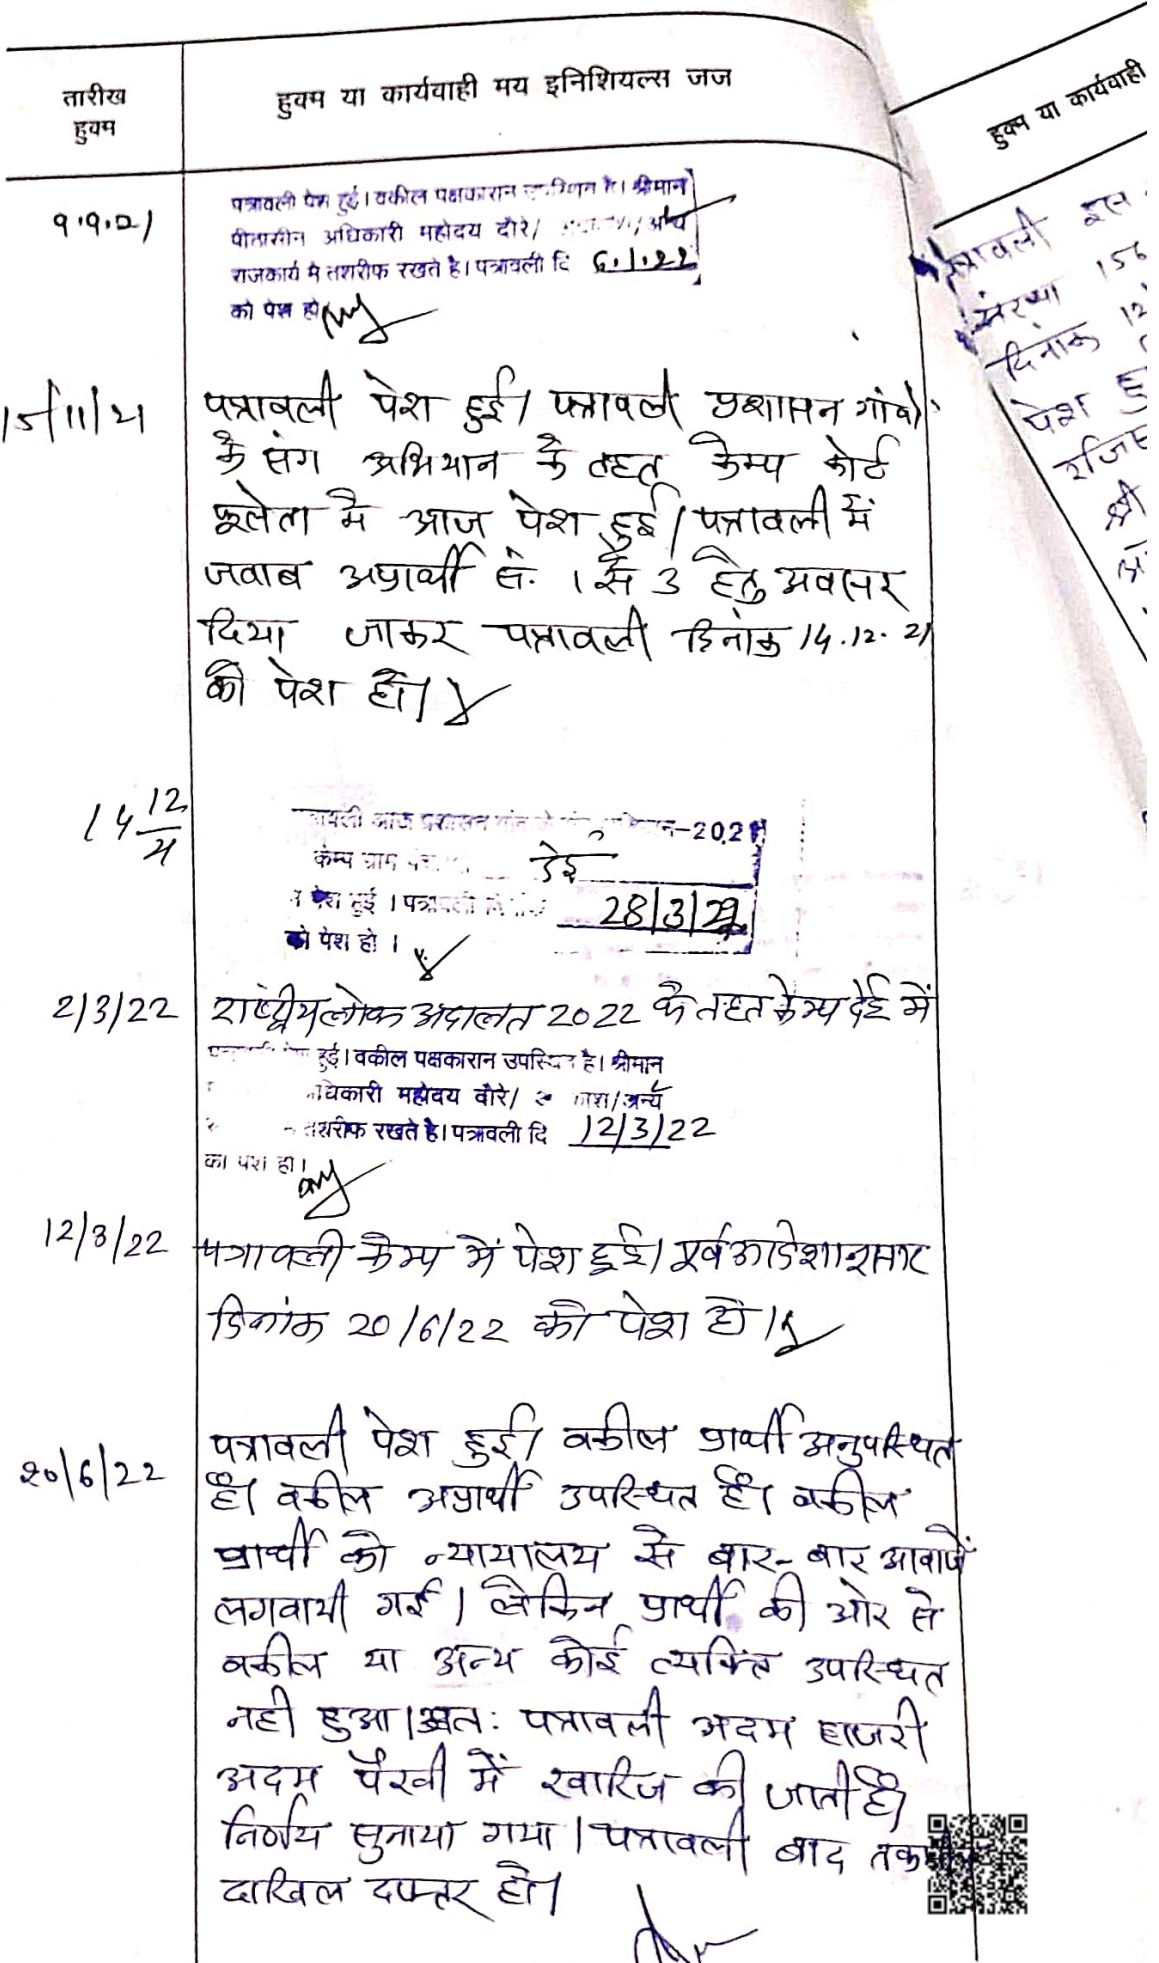 तारीख
हुक्म
हुक्म या कार्यवाही मय इनिशियल्स जज
हुक्म या कार्यवाही
9.9.21
पत्रावली पेश हुई। वकील पक्षकारान उपस्थित है। श्रीमान
पीठासीन अधिकारी महोदय दौरे/ अन्य
राजकार्य मे तशरीफ रखते है। पत्रावली दि 6.1.22
को पेश हो
15/11/21
पत्रावली पेश हुई। पत्रावली प्रशासन गांवो
के संग अभियान के तहत केम्प कोर्ट
फूलेता मे आज पेश हुई। पत्रावली में
जवाब अप्रार्थी सं. 1 से 3 हेतु अवसर
दिया जाकर पत्रावली दिनांक 14.12.21
को पेश हो।
14 12/21
आज प्रशासन -2021
केम्प ग्राम देई
पेश हुई । पत्रावली 28/3/22
को पेश हो ।
2/3/22
राष्ट्रीय लोक अदालत 2022 के तहत केम्प देई में
हुई। वकील पक्षकारान उपस्थित है। श्रीमान
अधिकारी महोदय दौरे/ /अन्य
तशरीफ रखते है। पत्रावली दि 12/3/22
को पेश हो।
12/3/22
पत्रावली केम्प में पेश हुई। पूर्व आदेशानुसार
दिनांक 20/6/22 को पेश हो।
20/6/22
पत्रावली पेश हुई। वकील प्रार्थी अनुपस्थित
है। वकील अप्रार्थी उपस्थित है। वकील
प्रार्थी को न्यायालय से बार-बार आवाजें
लगवायी गई। लेकिन प्रार्थी की ओर से
वकील या अन्य कोई व्यक्ति उपस्थित
नही हुआ। अत: पत्रावली अदम हाजरी
अदम पैरवी में खारिज की जाती है।
निर्णय सुनाया गया। पत्रावली बाद
दाखिल दफ्तर हो।
पत्रावली इस
संख्या 156
दिनांक 12
पेश
श्री